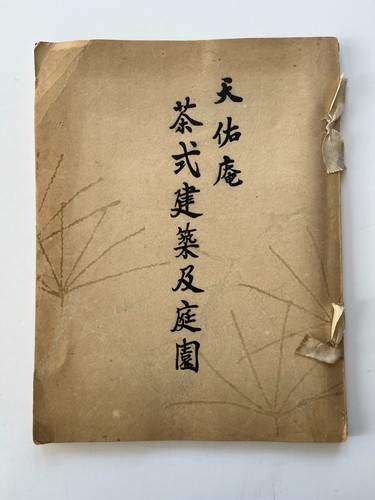 天佑庵
茶式建築及庭園